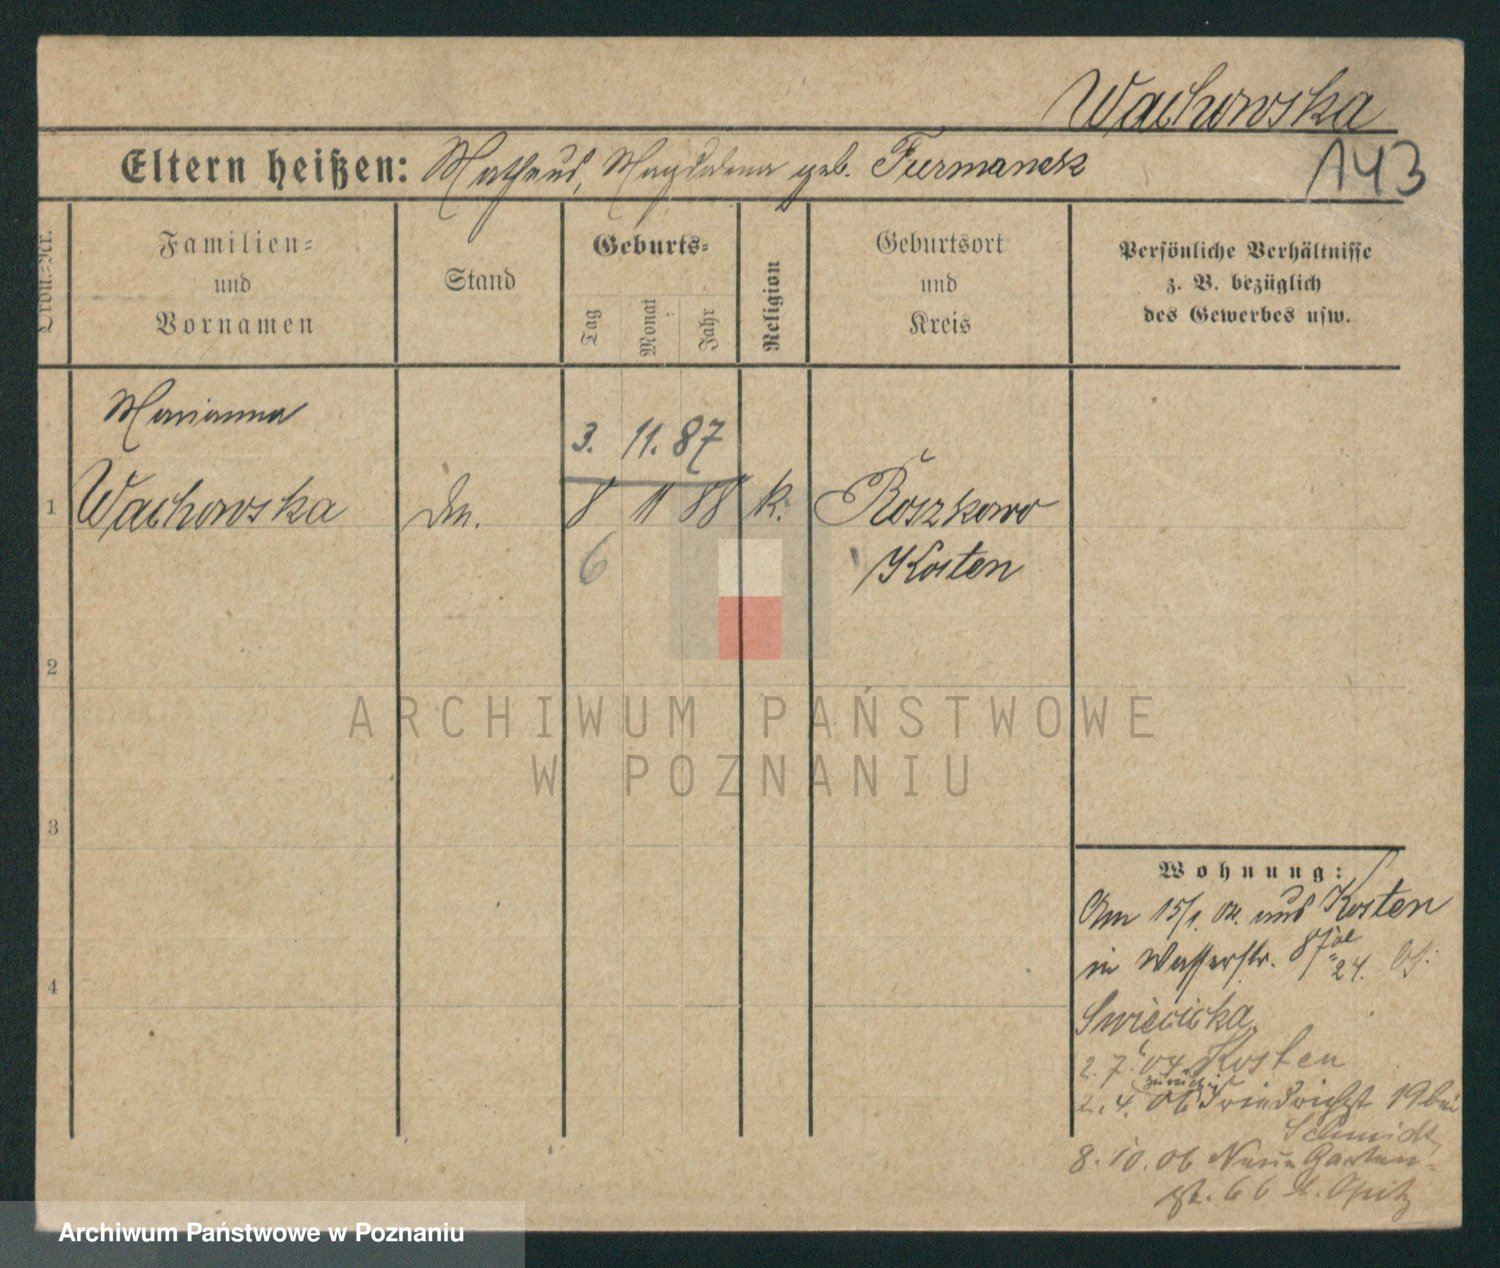 Wachowska
Eltern heißen: Matheus, Magdalena geb. Furmanek
143
Ordn.=Nr.
Familien=
und
Vornamen
Stand
Geburts=
Tag
Monat
Jahr
Religion
Geburtsort
und
Kreis
Persönliche Verhältnisse
z. B. bezüglich
des Gewerbes usw.
Marianna
3. 11. 87
1 Wachowska 8 11 88 k. Roszkowo
6
Kosten
2
3
4
ARCHIWUM PAŃSTWOWE
W POZNANIU
Wohnung:
Am 15/1. 04. aus Kosten
in Wasserstr. 24.
Swiecicka
2. 7. 04. Kosten
zurück
2. 4. 06 Friedrichst 19 bei
Schmidt
8. 10. 06 Neue Garten=
st. 66 Opitz
Archiwum Państwowe w Poznaniu